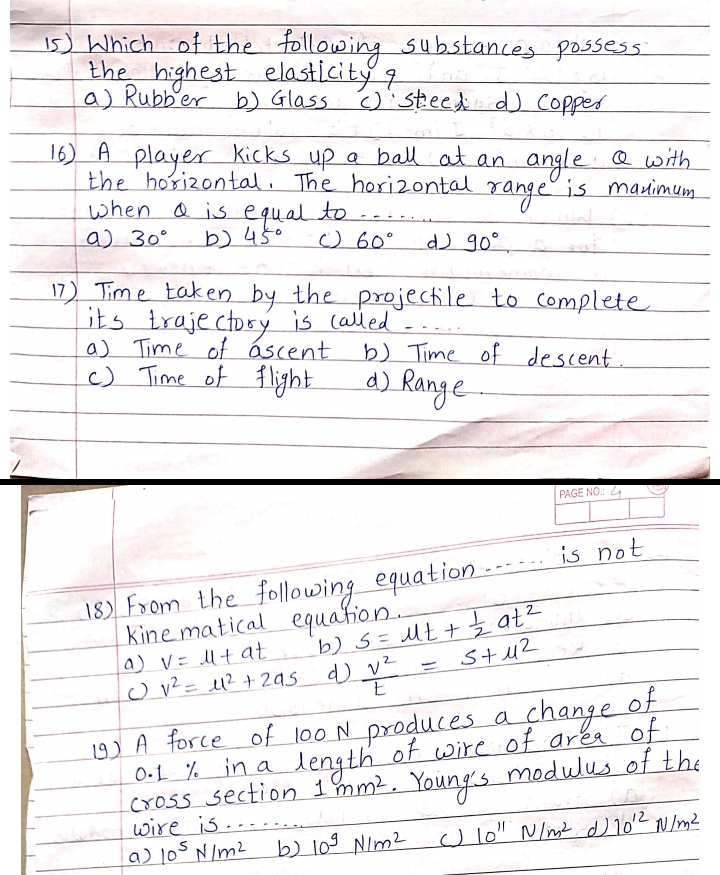 15) Which of the following substances possess
the highest elasticity?
a) Rubber b) Glass c) steel d) Copper
16) A player kicks up a ball at an angle Q with
the horizontal. The horizontal range is maximum
when Q is equal to .......
a) 30° b) 45° c) 60° d) 90°.
17) Time taken by the projectile to complete
its trajectory is called .....
a) Time of ascent b) Time of descent.
c) Time of flight d) Range.
PAGE NO.: 4
18) From the following equation ....... is not
kinematical equation.
a) v = u + at b) s = ut + 1/2 at²
c) v² = u² + 2as d) v²/t = s + u²
19) A force of 100 N produces a change of
0.1 % in a length of wire of area of
cross section 1 mm². Young's modulus of the
wire is ........
a) 10⁵ N/m² b) 10⁹ N/m² c) 10¹¹ N/m² d) 10¹² N/m²